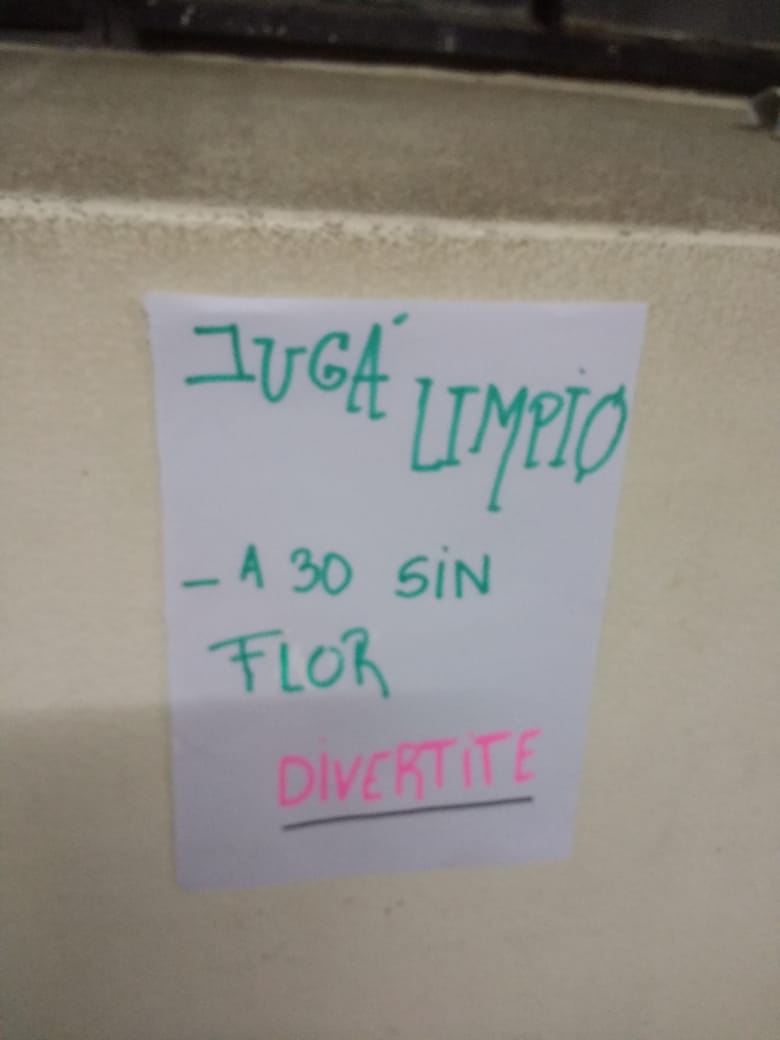 JUGÁ LIMPIO
- A 30 SIN
FLOR
DIVERTITE